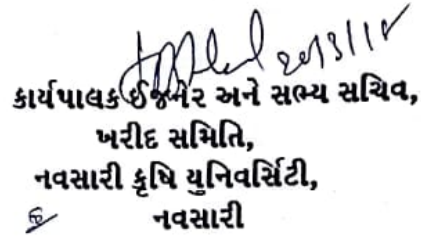 20/3/18
કાર્યપાલક ઈજનેર અને સભ્ય સચિવ,
ખરીદ સમિતિ,
નવસારી કૃષિ યુનિવર્સિટી,
નવસારી